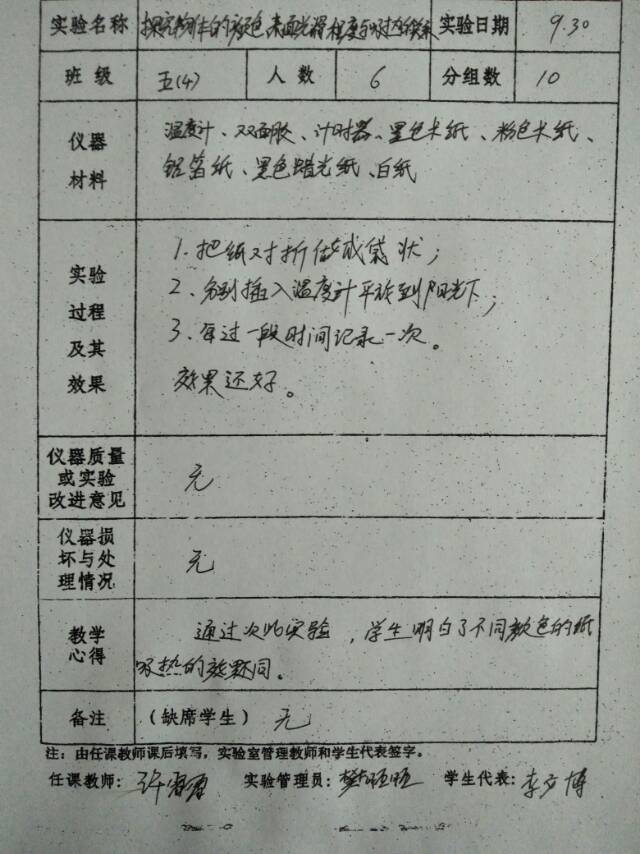 实验名称 探究物体的颜色、表面光滑程度与吸热的关系 实验日期 9.30
班级 五(4) 人数 6 分组数 10
仪器材料
温度计、双面胶、计时器、黑色卡纸、粉色卡纸、
铝箔纸、黑色蜡光纸、白纸
实验过程及其效果
1.把纸对折做成袋状;
2、分别插入温度计平放到阳光下;
3、每过一段时间记录一次。
效果还好。
仪器质量
或实验
改进意见
无
仪器损
坏与处
理情况
无
教学
心得
通过次此实验,学生明白了不同颜色的纸
吸热的效果不同。
备注 (缺席学生) 无
注:由任课教师课后填写,实验室管理教师和学生代表签字。
任课教师: 许 实验管理员: 樊 学生代表: 李文博